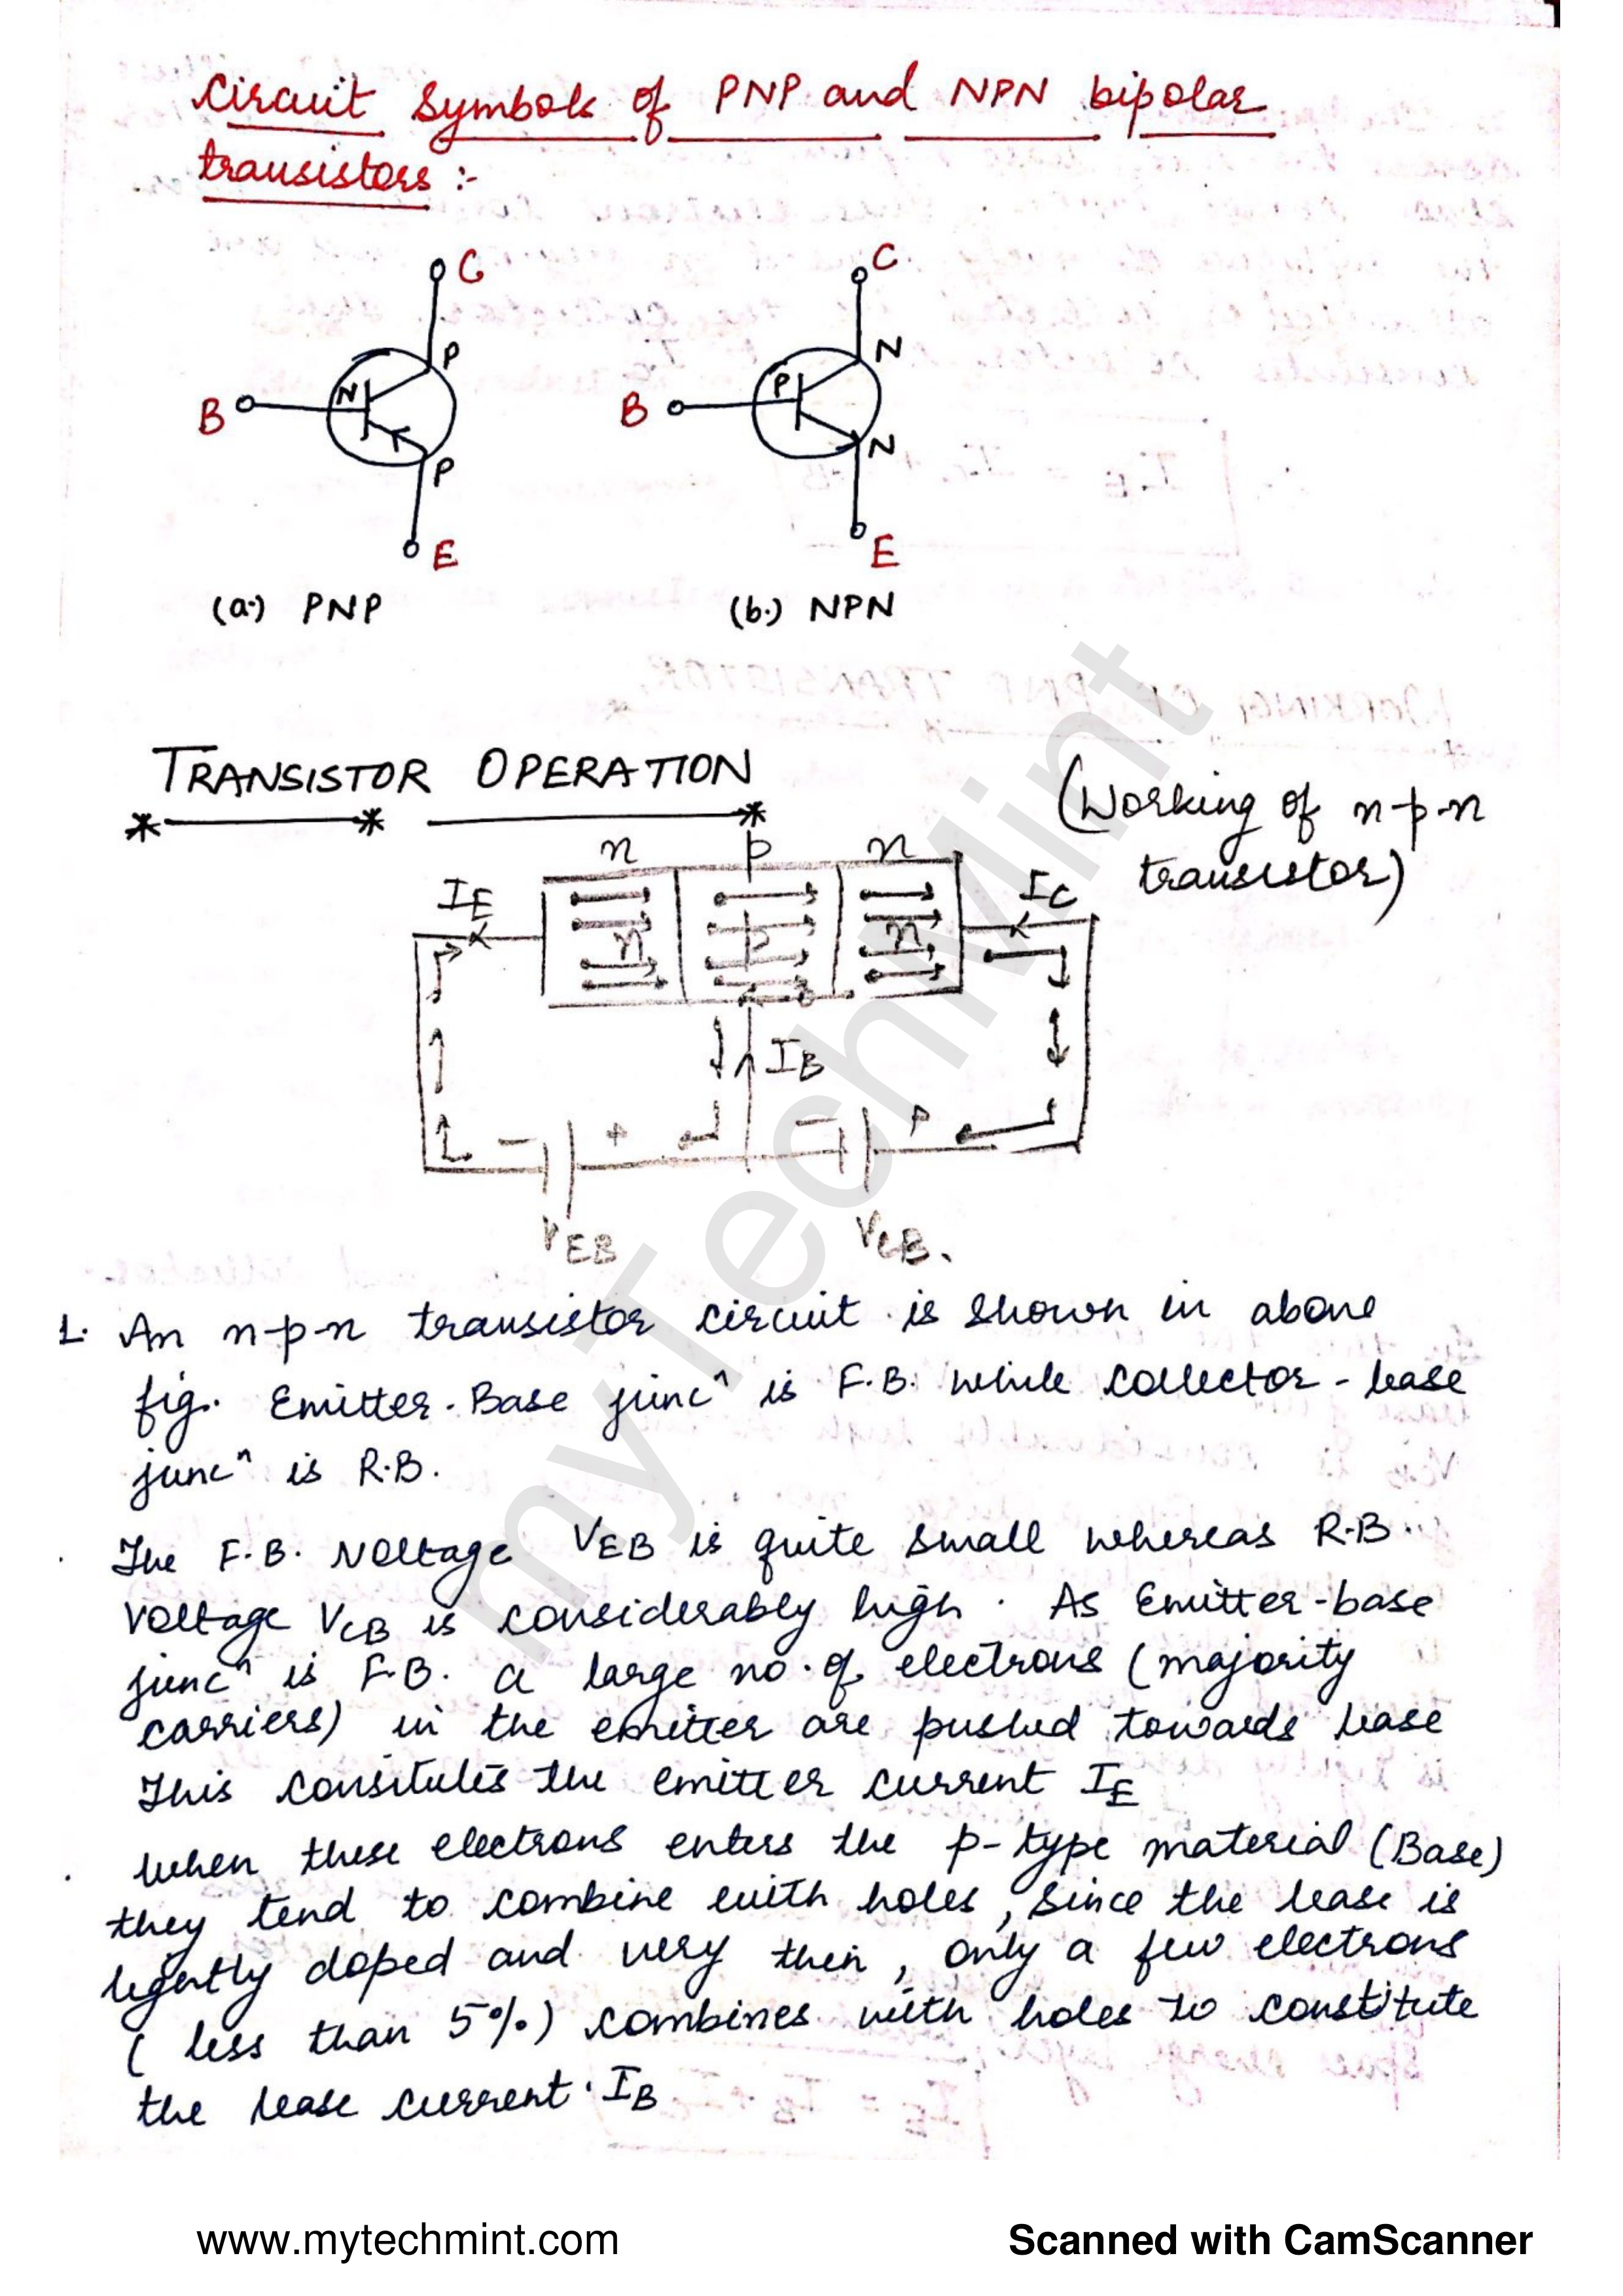 Circuit Symbols of PNP and NPN bipolar
transistors :-
C
C
P
N
B
N
B
P
P
N
E
E
(a.) PNP
(b.) NPN
TRANSISTOR OPERATION
(Working of n-p-n
transistor)
n p n
IE
IC
n p n
IB
- + -
P
VEB
VCB.
1. An n-p-n transistor circuit is shown in above
fig. Emitter-Base juncⁿ is F.B. while collector-base
juncⁿ is R.B.
. The F.B. Voltage VEB is quite small whereas R.B.
Voltage VCB is considerably high. As Emitter-base
juncⁿ is F.B. a large no. of electrons (majority
carriers) in the emitter are pushed towards base
This consitutes the emitter current IE
. When these electrons enters the p-type material (Base)
they tend to combine with holes, since the base is
lightly doped and very thin, only a few electrons
(less than 5%) combines with holes to constitute
the base current. IB
myTechMint
www.mytechmint.com
Scanned with CamScanner